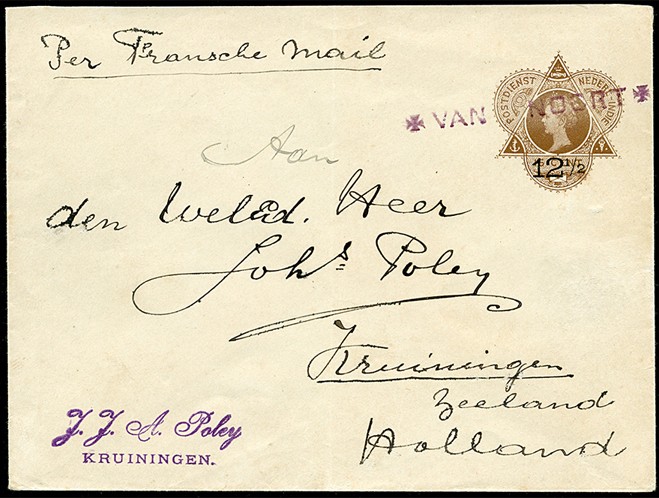 Per Fransche Mail
POSTDIENST NEDERL. INDIE
✠ VAN NOERT ✠
12 1/2
Aan
den WelEd. Heer
Johs Poley
Kruiningen
Zeeland
Holland
J. J. A. Poley
KRUININGEN.